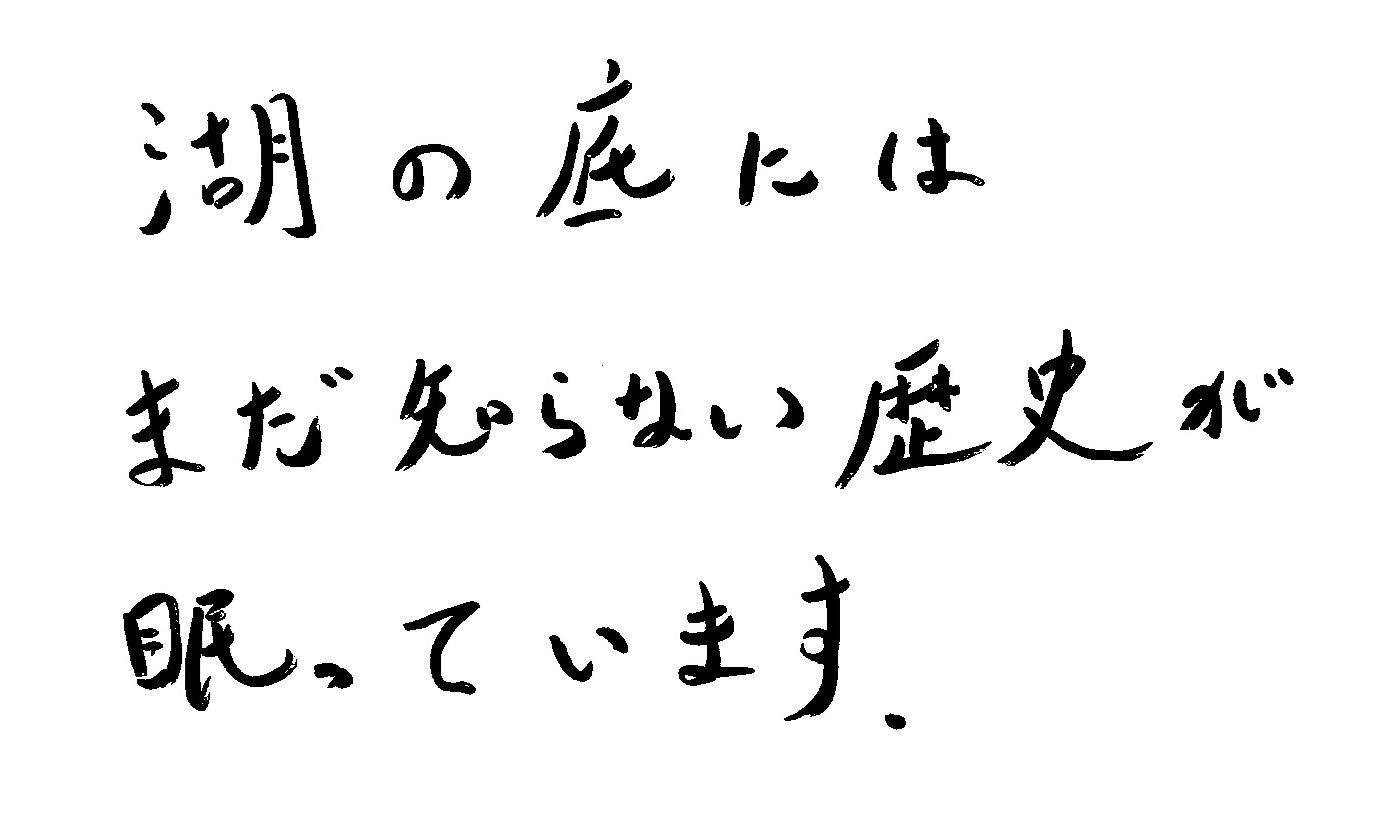 湖の底には
まだ知らない歴史が
眠っています.